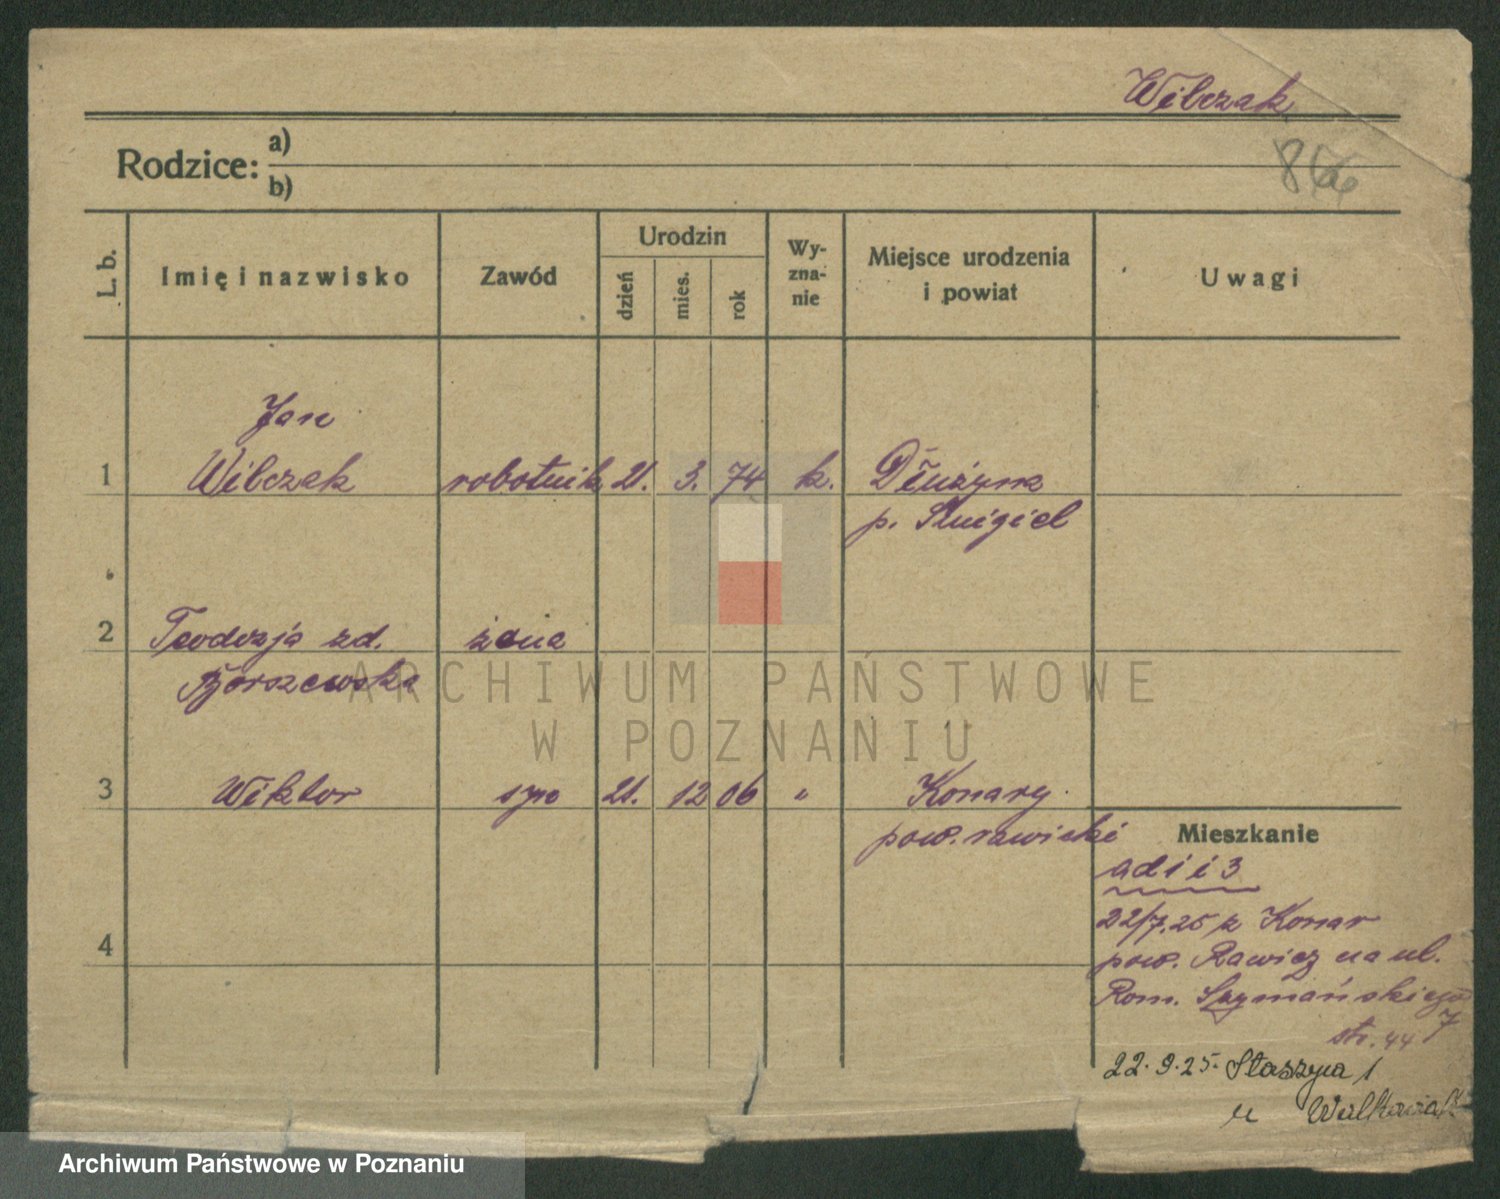 Wilczak
Rodzice: a)
b)
L. b.
Imię i nazwisko
Zawód
Urodzin
dzień
mies.
rok
Wy-
zna-
nie
Miejsce urodzenia
i powiat
Uwagi
Jan
1 Wilczak robotnik 21. 3. 74 k. Dłużyna
p. Śmigiel
2 Teodozja zd. żona
Borszewska
ARCHIWUM PAŃSTWOWE
W POZNANIU
3 Wiktor syn 21. 12 06 " Konary
pow. rawicki
4
Mieszkanie
ad 1 i 3
22/7.25 z Konar
pow. Rawicz na ul.
Rom. Szymańskiego
7
str. 44
22.9.25. Staszyca 1
u Walkowiak
Archiwum Państwowe w Poznaniu